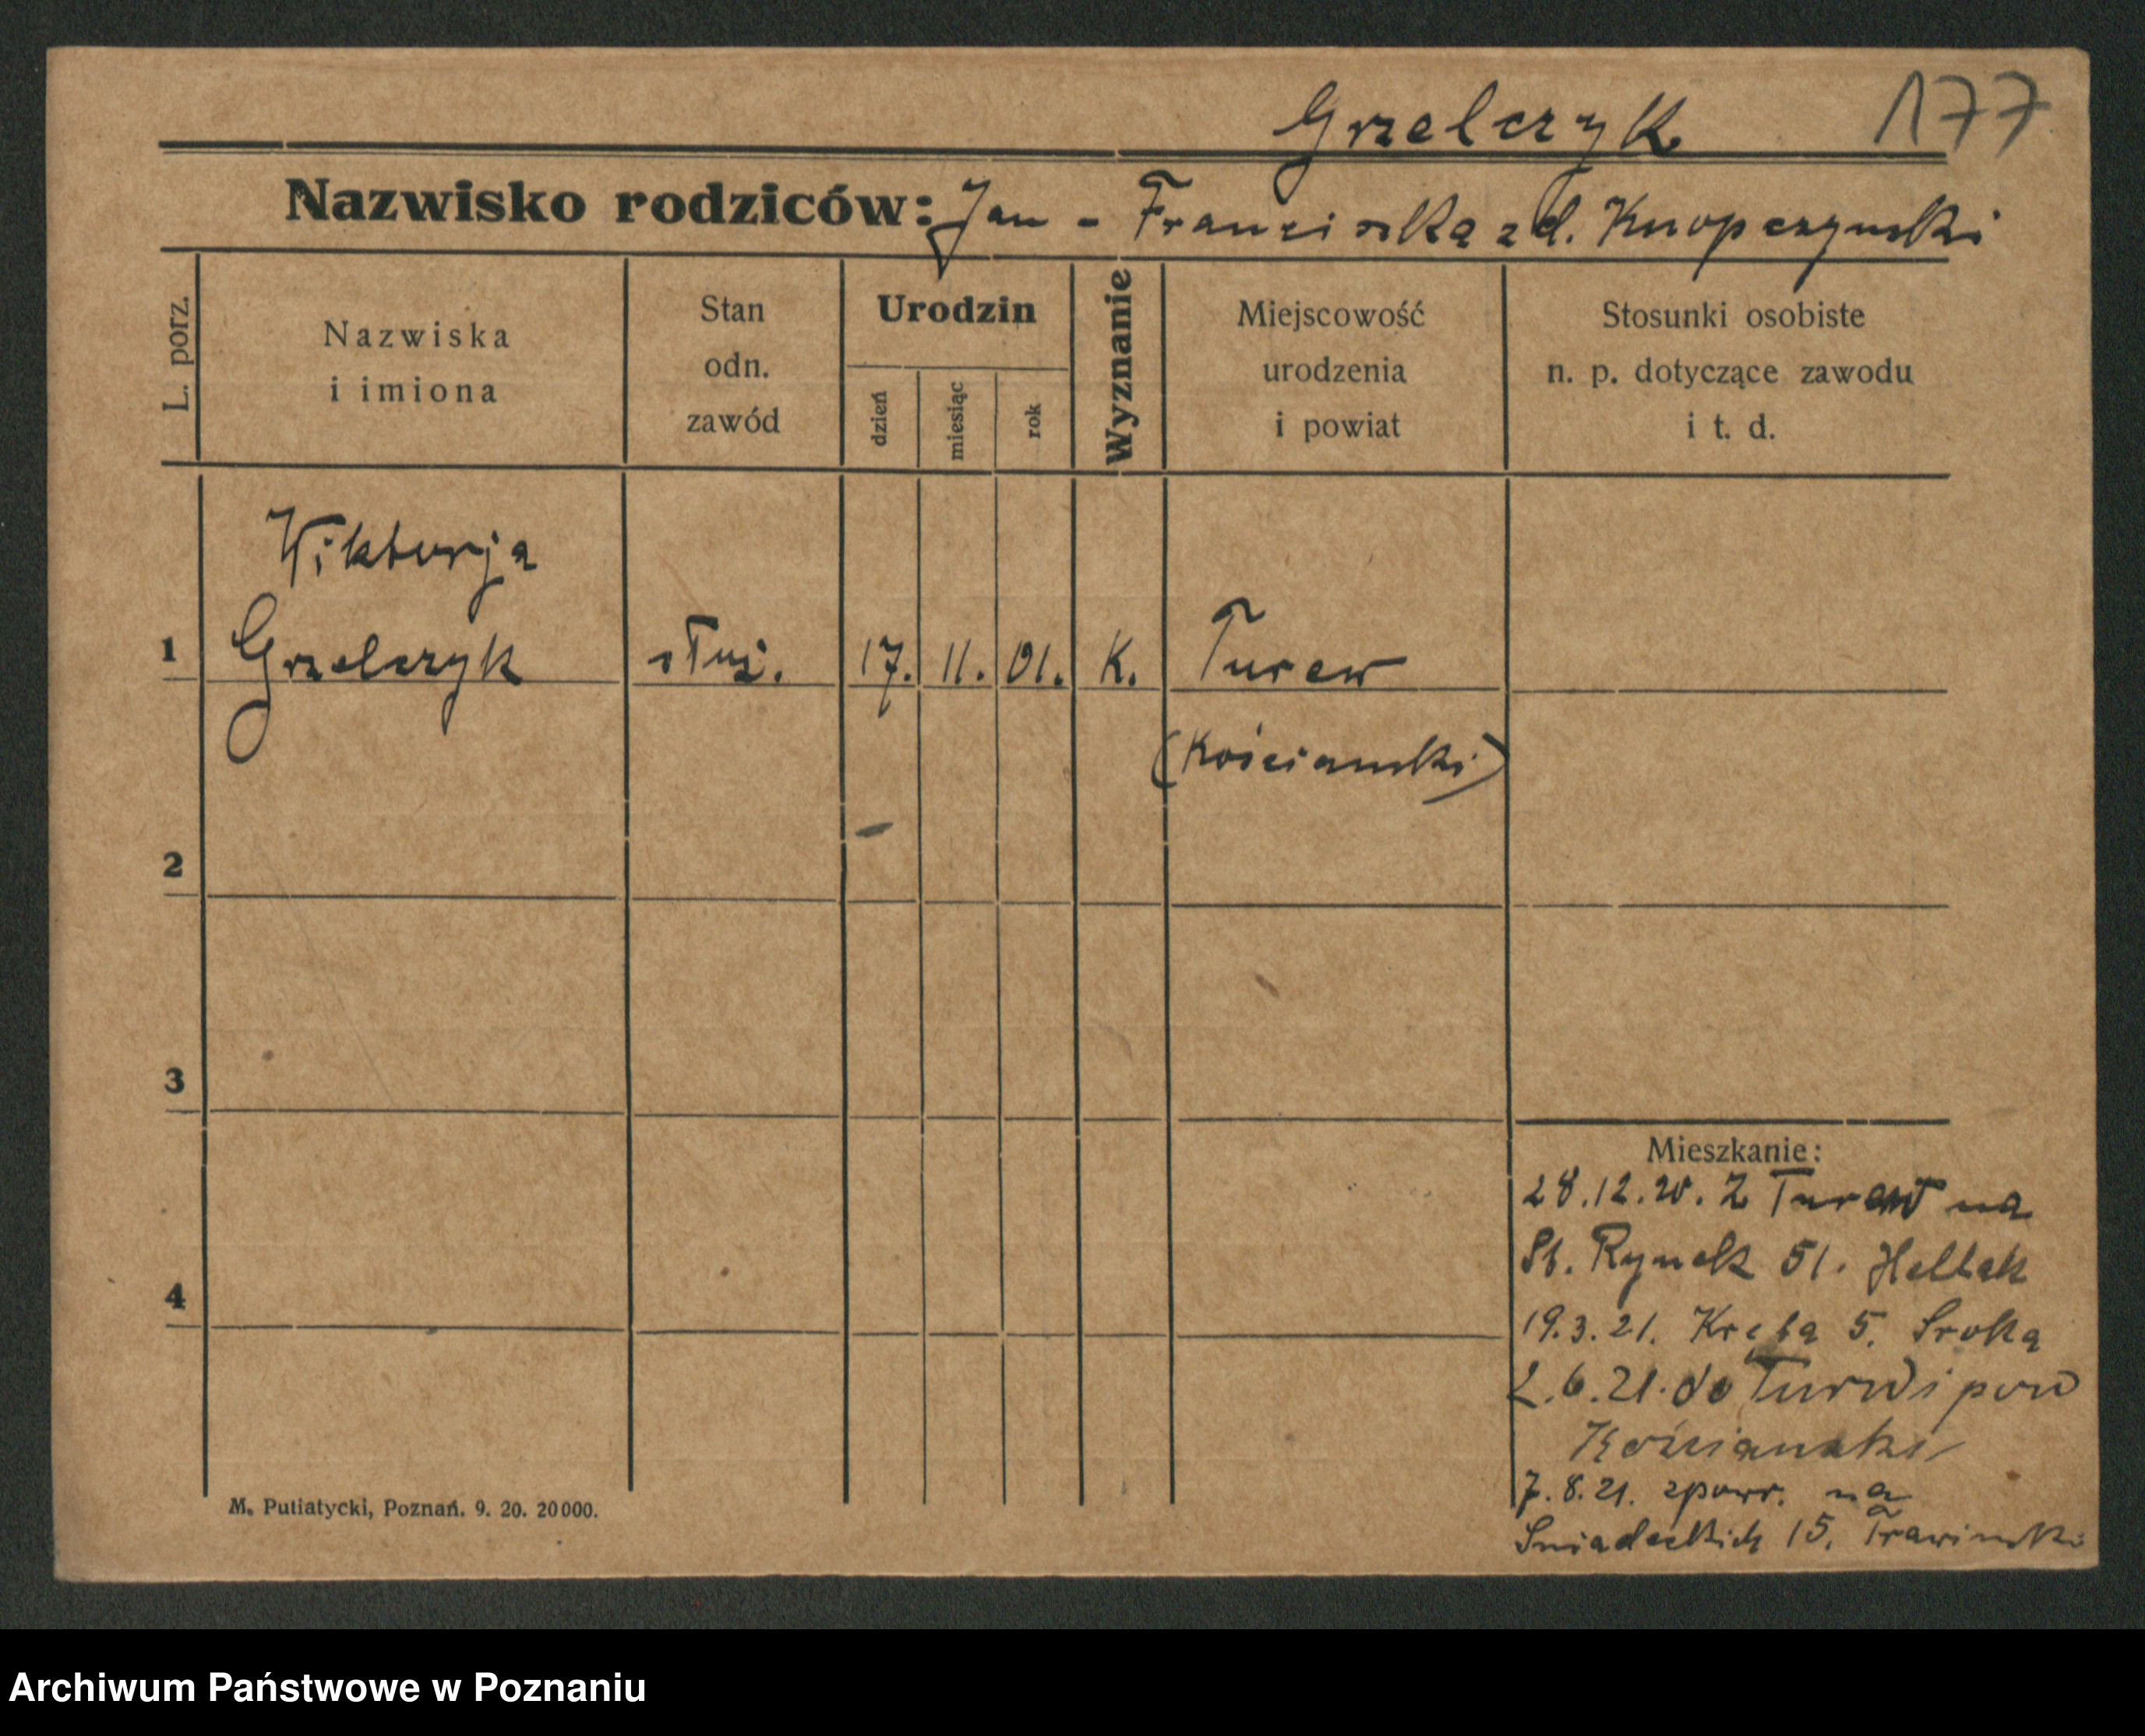 Grzelczyk 177
Nazwisko rodziców: Jan - Franciszka zd. Knopczyński
L. porz.
Nazwiska
i imiona
Stan
odn.
zawód
Urodzin
dzień
miesiąc
rok
Wyznanie
Miejscowość
urodzenia
i powiat
Stosunki osobiste
n. p. dotyczące zawodu
i t. d.
Wiktorja
1 Grzelczyk służ. 17. 11. 01. K. Turew
(Kościański)
2
3
4
Mieszkanie:
28.12.20. Z Turew na
St. Rynek 51.
19.3.21. Kręta 5. Sroka
2.6.21. do Turwi pow
Kościański
7.8.21. zpowr. na
Śniadeckich 15. Trawiński
M. Putiatycki, Poznań. 9. 20. 20000.
Archiwum Państwowe w Poznaniu